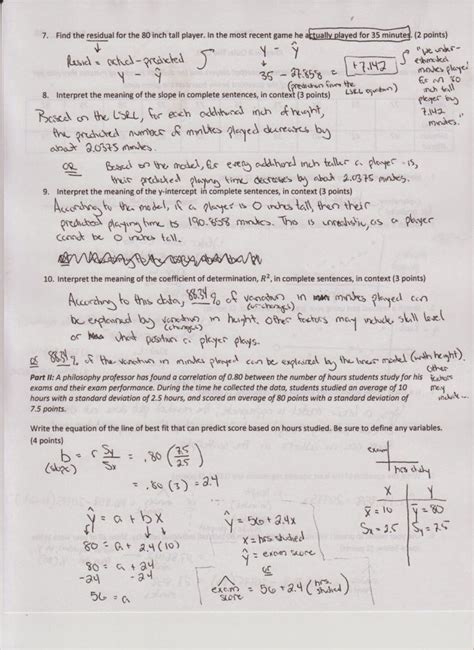 7. Find the residual for the 80 inch tall player. In the most recent game he actually played for 35 minutes. (2 points)
Resid = actual - predicted
y - ŷ
y - ŷ
35 - 27.858 = +7.142
(prediction from the LSRL equation)
"We under-
estimated
minutes played
for an 80
inch tall
player by
7.142
minutes."
8. Interpret the meaning of the slope in complete sentences, in context (3 points)
Based on the LSRL, for each additional inch of height,
the predicted number of minutes played decreases by
about 2.0375 minutes.
OR Based on the model, for every additional inch taller a player is,
their predicted playing time decreases by about 2.0375 minutes.
9. Interpret the meaning of the y-intercept in complete sentences, in context (3 points)
According to the model, if a player is 0 inches tall, then their
predicted playing time is 190.858 minutes. This is unrealistic, as a player
cannot be 0 inches tall.
10. Interpret the meaning of the coefficient of determination, R², in complete sentences, in context (3 points)
According to this data, 88.34 % of variation in minutes played can
(or changes)
be explained by variation in height. Other factors may include skill level
(or changes)
or what position a player plays.
OR 88.34 % of the variation in minutes played can be explained by the linear model (with height).
Other
factors
may
include...
Part II: A philosophy professor has found a correlation of 0.80 between the number of hours students study for his
exams and their exam performance. During the time he collected the data, students studied an average of 10
hours with a standard deviation of 2.5 hours, and scored an average of 80 points with a standard deviation of
7.5 points.
Write the equation of the line of best fit that can predict score based on hours studied. Be sure to define any variables.
(4 points)
b = r Sy/Sx = .80 (7.5/2.5)
(slope)
= .80 (3) = 2.4
exam
hrs study
X Y
x̄ = 10 ȳ = 80
Sx = 2.5 Sy = 7.5
ŷ = a + bx
80 = a + 2.4(10)
80 = a + 24
-24 -24
56 = a
ŷ = 56 + 2.4x
x = hrs studied
ŷ = exam score
or
exam score = 56 + 2.4 (hrs. studied)